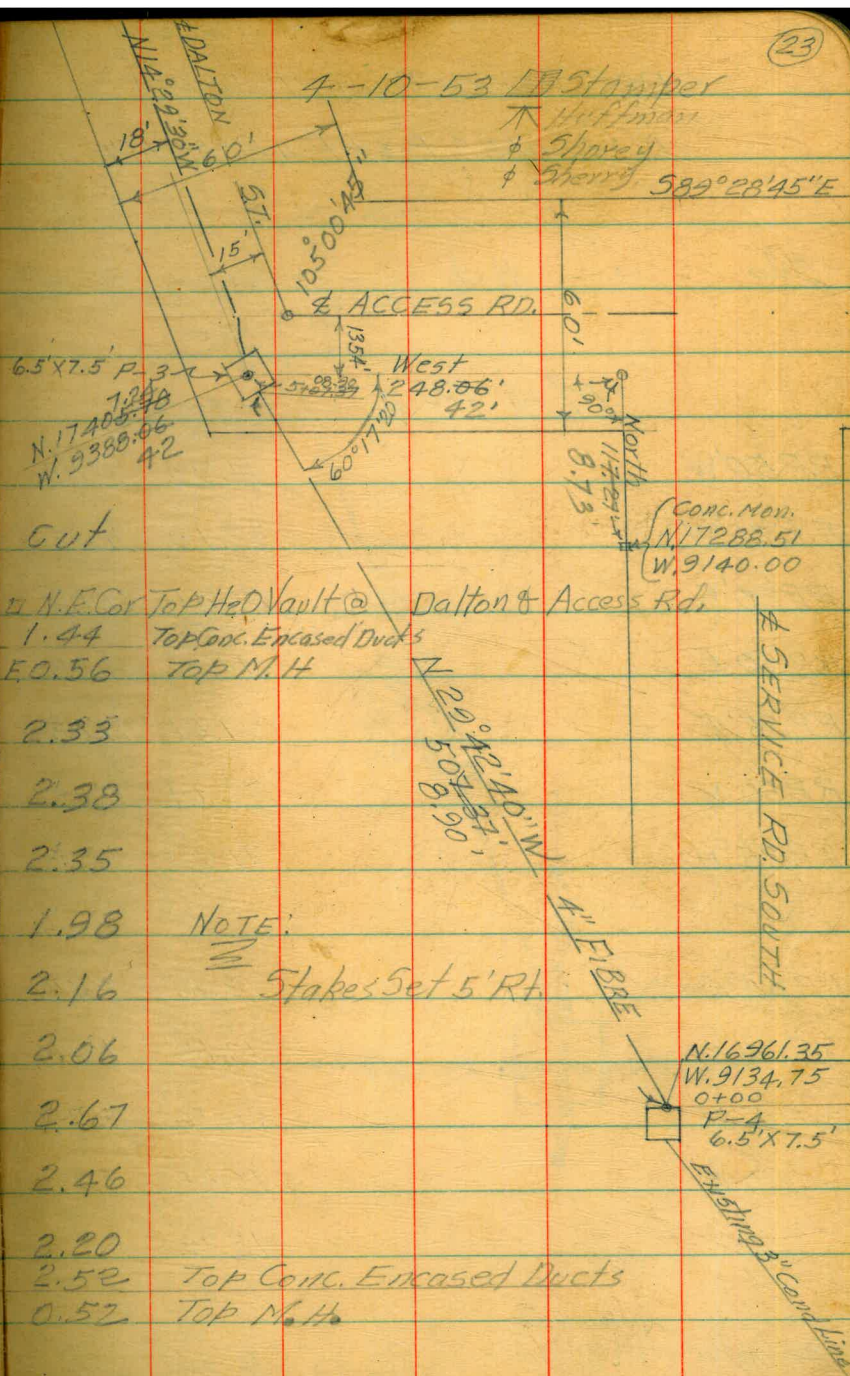 23
4-10-53 Stamper
Huffman
Shorey
Sherry
℄ DALTON
N14°29'30"W
18'
60'
S.T.
105°00'45"
S89°28'45"E
15'
℄ ACCESS RD.
60'
13.54'
6.5'X7.5' P-3
West
248.06'
42'
7.24
N.17405.78
W.9388.06
42
60°17'20"
90°
North
117.27
8.73
Conc. Mon.
N.17288.51
W.9140.00
Cut
N.E. Cor Top H2O Vault @ Dalton & Access Rd.
1.44 Top Conc. Encased Ducts
0.56 Top M.H
2.33
2.38
2.35
1.98 NOTE:
2.16 Stakes Set 5' Rt.
2.06
2.67
2.46
2.20
2.52 Top Conc. Encased Ducts
0.52 Top M.H.
N 29°42'40" W
507.37'
8.90'
4" FIBRE
℄ SERVICE RD. SOUTH
N.16961.35
W.9134.75
0+00
P-4
6.5'X7.5'
Existing 3" Cond Line